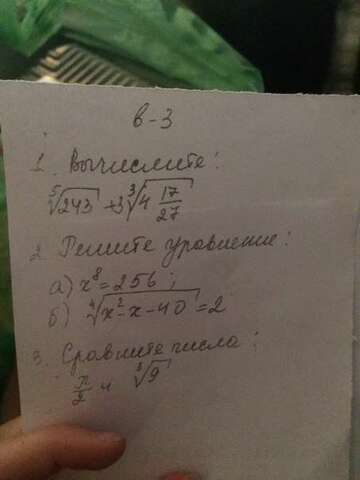 в-3
1. Вычислите:
⁵√243 + 3 ³√4 17/27
2. Решите уравнение:
а) x⁸ = 256;
б) ⁴√x² - x - 40 = 2
3. Сравните числа:
π/2 и ³√9